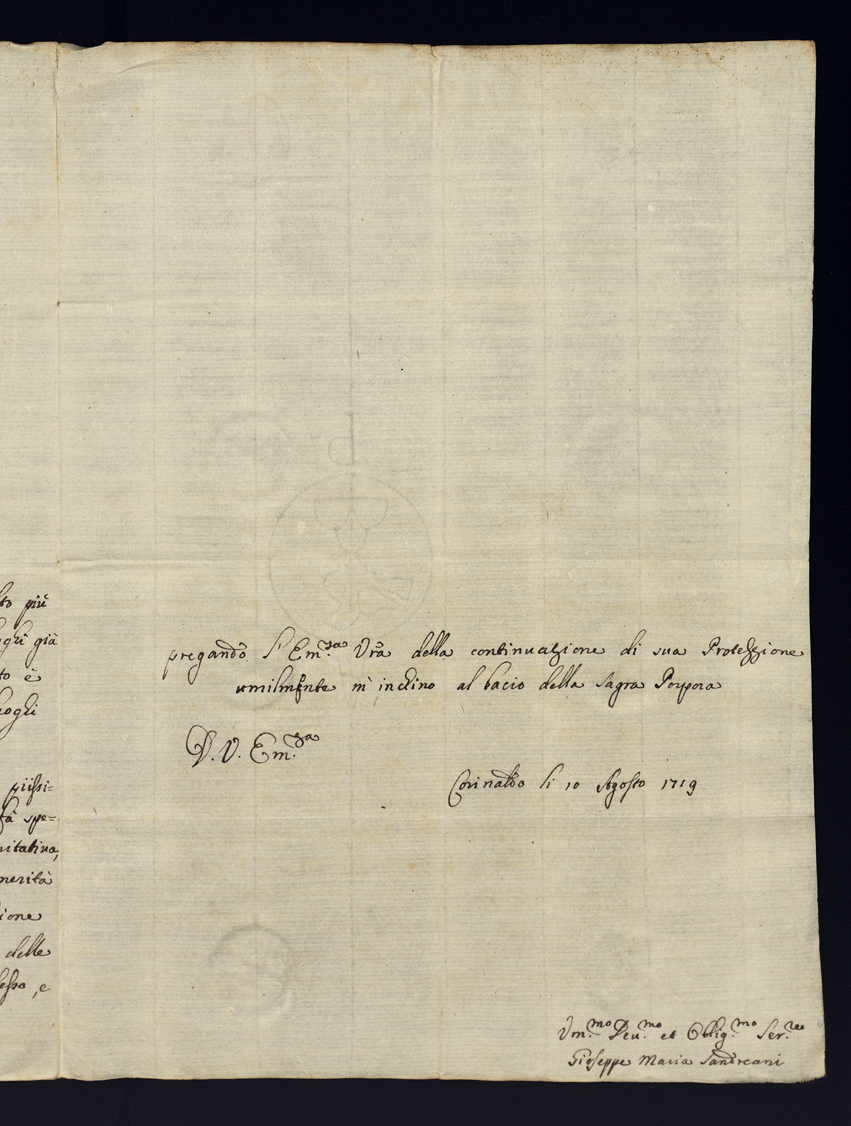 to più
oghi già
to è
uoghi
pijssi=
tà spe=
ritativa,
merità
ione
delle
esso, e
pregando l'Em.za Vrā della continuatzione di sua Protezzione
umilmente m'inchino al bacio della Sagra Porpora
D. V. Em.za
Corinaldo li 10 Agosto 1719
Vm.mo Deu.mo et Oblig.mo Ser.re
Gioseppe Maria Sandreani